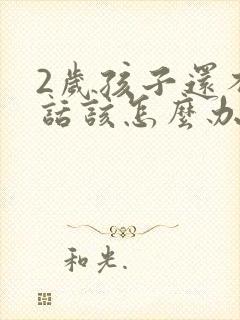 2歲孩子還
話該怎麼办
和光.